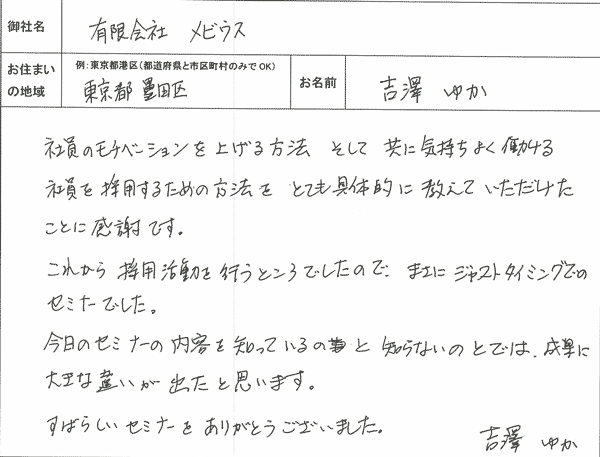 御社名 有限会社 メビウス
お住まいの地域 例:東京都港区(都道府県と市区町村のみでOK)
東京都 墨田区 お名前 吉澤 ゆか
社員のモチベーションを上げる方法 そして 共に気持ちよく働ける
社員を採用するための方法を とても具体的に 教えていただけた
ことに感謝です。
これから 採用活動を行うところでしたので、まさに ジャストタイミングでの
セミナーでした。
今日のセミナーの内容を知っているのと 知らないのとでは、成果に
大きな違いが出たと思います。
すばらしいセミナーをありがとうございました。
吉澤 ゆか